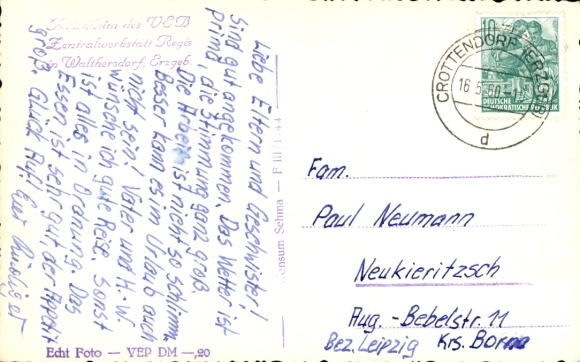 Ferienheim des VEB
Zentralwerkstatt Regis
in Walthersdorf, Erzgeb.
Liebe Eltern und Geschwister!
Sind gut angekommen. Das Wetter ist
prima, die Stimmung ganz groß.
Die Arbeit ist nicht so schlimm.
Besser kann es im Urlaub auch
nicht sein! Vater und H.-W.
wünsche ich gute Reise. Sonst
ist alles in Ordnung. Das
Essen ist sehr gut der Appetit
groß. Glück Auf! Euer
Echt Foto — VEP DM —,20
Konsum Sehma — F
10
DEUTSCHE
DEMOKRATISCHE REPUBLIK
CROTTENDORF (ERZGEB)
16.5.60
d
Fam.
Paul Neumann
Neukieritzsch
Aug.-Bebelstr. 11
Bez. Leipzig Krs. Borna